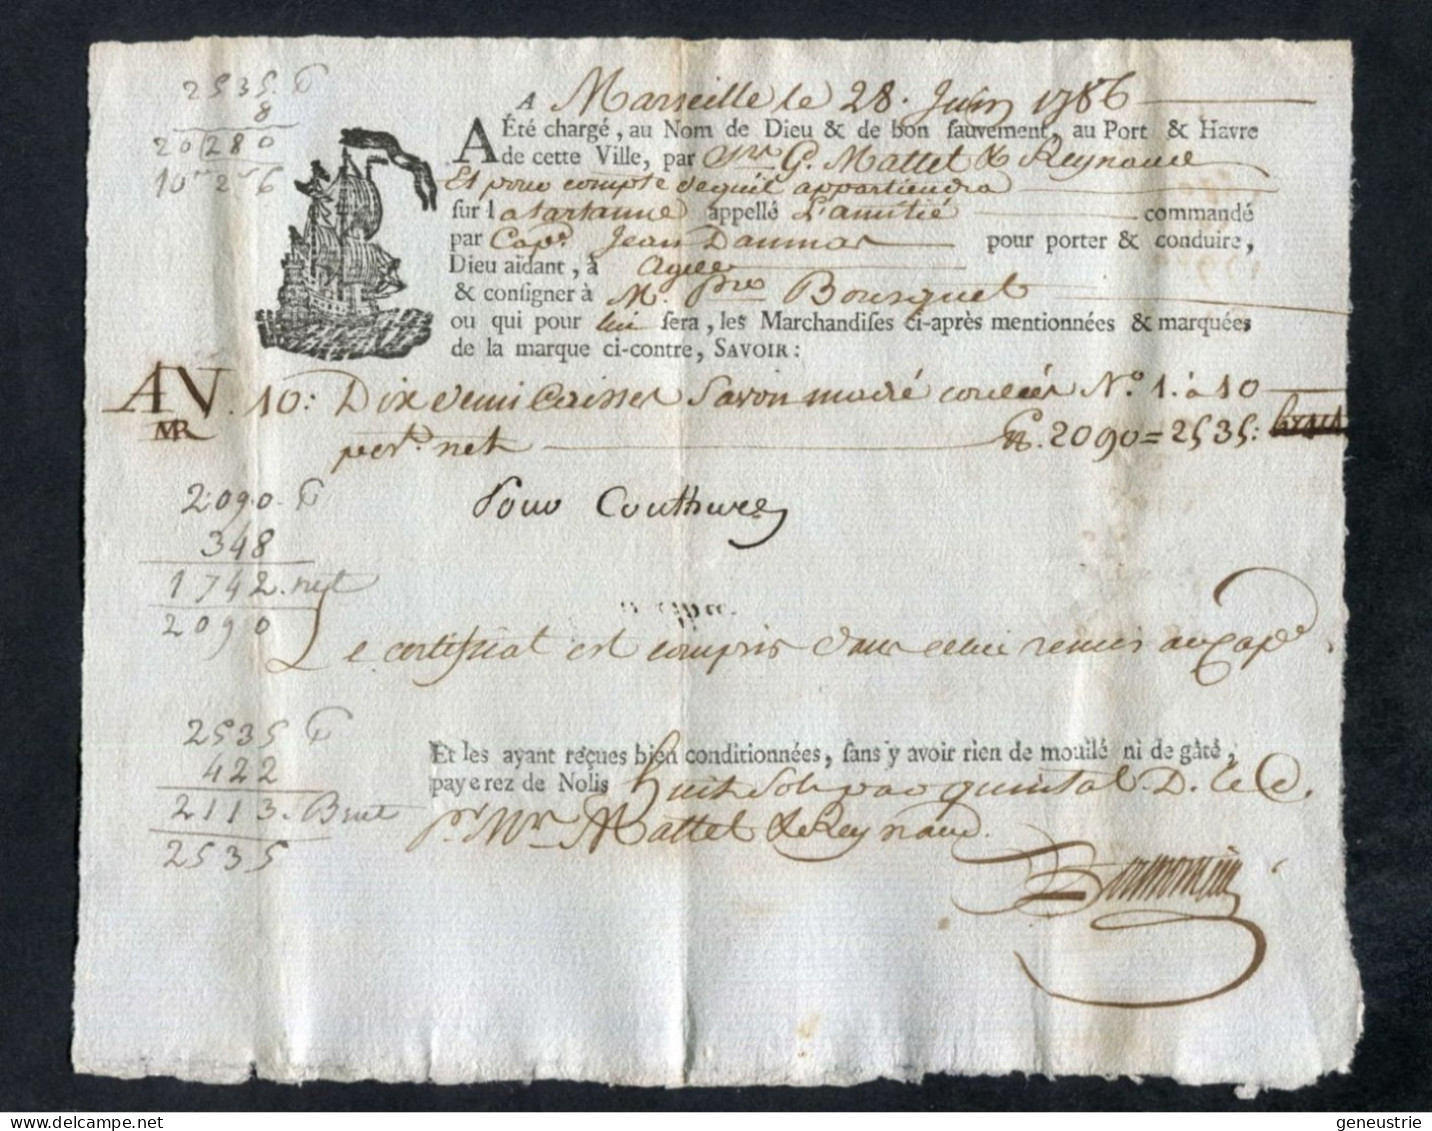 2535 ₶
8
20280
10 2 6
A Marseille le 28. Juin 1786
A Été chargé, au Nom de Dieu & de bon sauvement, au Port & Havre
de cette Ville, par Srs. G. Mattet & Reynaud
Et pour compte de qu'il appartiendra
sur la tartanne appellé L'amitié commandé
par Capne. Jean Daumas pour porter & conduire,
Dieu aidant, à Agde
& consigner à M. Pre Bousquet
ou qui pour lui sera, les Marchandises ci-après mentionnées & marquées
de la marque ci-contre, SAVOIR:
AV. 10: Dix demi Caisses Savon madré coulées No. 1. à 10
MR
net 2090 = 2535:
2090. ₶
348
1742. net
2090
Pour Couthures
Le certificat est compris dans celui remis au Cape
2535 ₶
422
2113. Brut
2535
Et les ayant reçues bien conditionnées, sans y avoir rien de mouilé ni de gâté,
payerez de Nolis huit sols par quintal D. le C.
pr. Mrs. Mattet & Reynaud.
geneustrie
delcampe.net